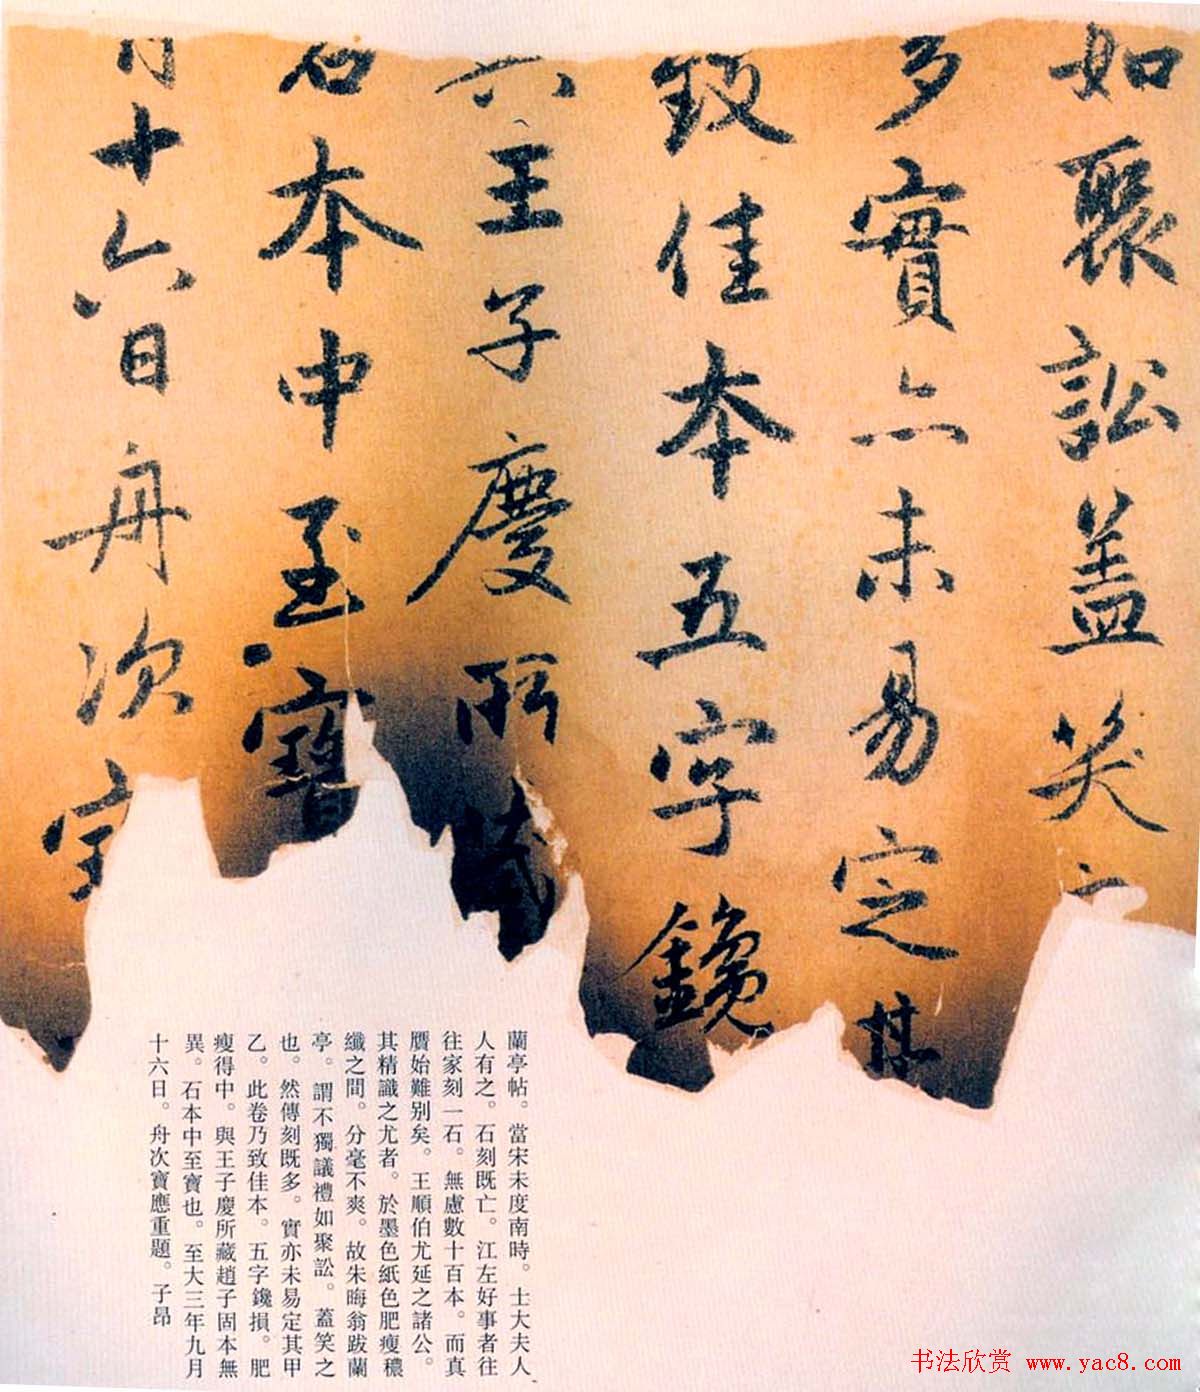 如聚訟蓋笑之
多實亦未易定其
致佳本五字鑱
與王子慶所藏
石本中至寶
月十六日舟次寶
蘭亭帖。當宋未度南時。士大夫人
人有之。石刻既亡。江左好事者往
往家刻一石。無慮數十百本。而真
贋始難別矣。王順伯尤延之諸公。
其精識之尤者。於墨色紙色肥瘦穠
纖之間。分毫不爽。故朱晦翁跋蘭
亭。謂不獨議禮如聚訟。蓋笑之
也。然傳刻既多。實亦未易定其甲
乙。此卷乃致佳本。五字鑱損。肥
瘦得中。與王子慶所藏趙子固本無
異。石本中至寶也。至大三年九月
十六日。舟次寶應重題。子昂
书法欣赏 www.yac8.com